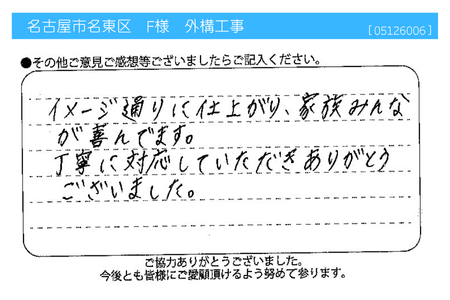 名古屋市名東区　F様　外構工事　[05126006]
●その他ご意見ご感想等ございましたらご記入ください。
イメージ通りに仕上がり、家族みんな
が喜んでます。
丁寧に対応していただきありがとう
ございました。
ご協力ありがとうございました。
今後とも皆様にご愛顧頂けるよう努めて参ります。